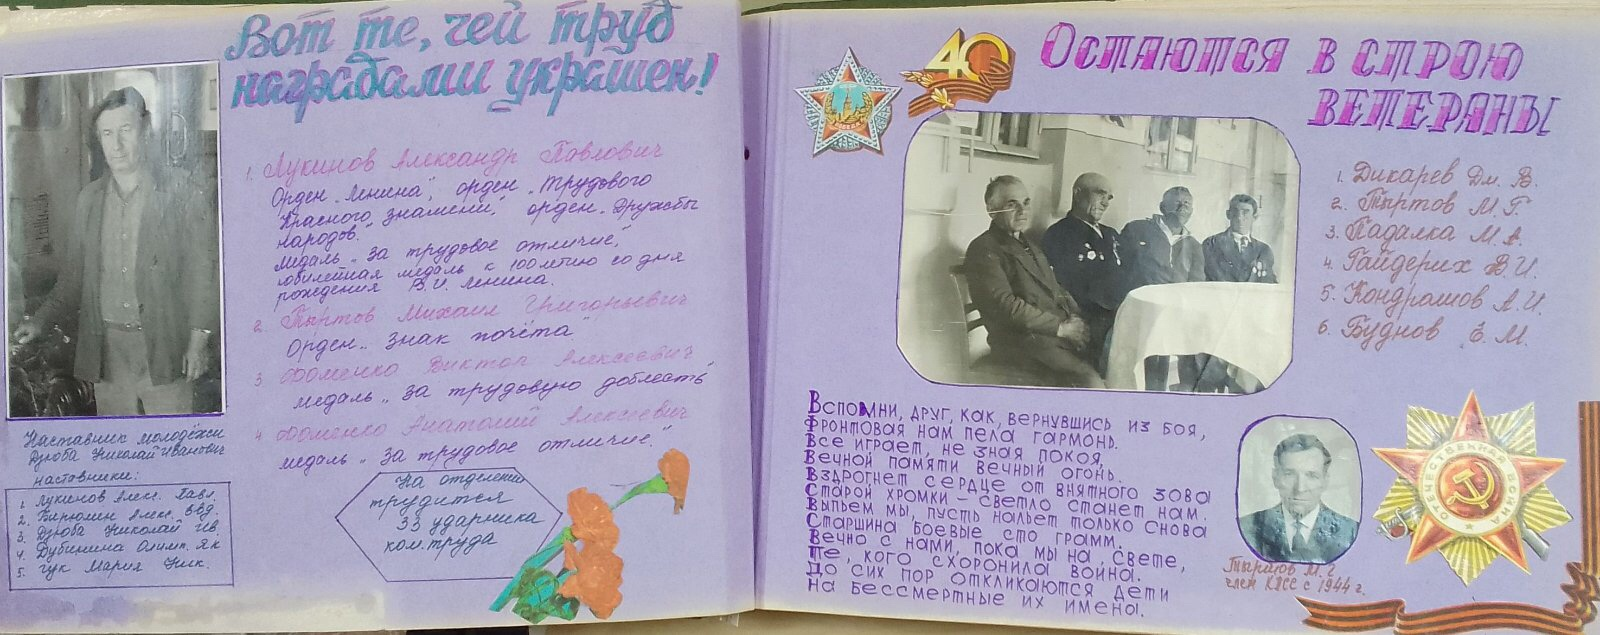 Вот те, чей труд
наградами украшен!
1. Лукинов Александр Павлович
Орден „Ленина", орден „Трудового
Красного знамени", орден „Дружбы
народов."
медаль „За трудовое отличие",
юбилейная медаль к 100летию со дня
рождения В.И. Ленина.
2. Тыртов Михаил Григорьевич
Орден „Знак почёта"
3. Фоменко Виктор Алексеевич
медаль „За трудовую доблесть"
4. Фоменко Анатолий Алексеевич
медаль „За трудовое отличие."
Наставник молодёжи
Дзюба Николай Иванович
наставники:
1. Лукинов Алекс. Павл.
2. Бирюлин Алекс.
3. Дзюба Николай Ив.
4. Дубинина Олимп. Як
5. Гук Мария Ник.
На отделении
трудится
33 ударника
ком. труда
40
ПОБЕДА
Остаются в строю
ветераны
1. Дикарев Дм. В.
2. Тыртов М. Г.
3. Падалка М. А.
4. Гайдерих В. И.
5. Кондрашов А. И.
6. Буднов Е. М.
Вспомни, друг, как, вернувшись из боя,
Фронтовая нам пела гармонь.
Все играет, не зная покоя,
Вечной памяти вечный огонь.
Вздрогнет сердце от внятного зова
Старой хромки – светло станет нам.
Выпьем мы, пусть нальет только снова
Старшина боевые сто грамм.
Вечно с нами, пока мы на свете,
Те, кого схоронила война.
До сих пор откликаются дети
На бессмертные их имена.
Тыртов М. Г.
член КПСС с 1944 г.
ОТЕЧЕСТВЕННАЯ ВОЙНА